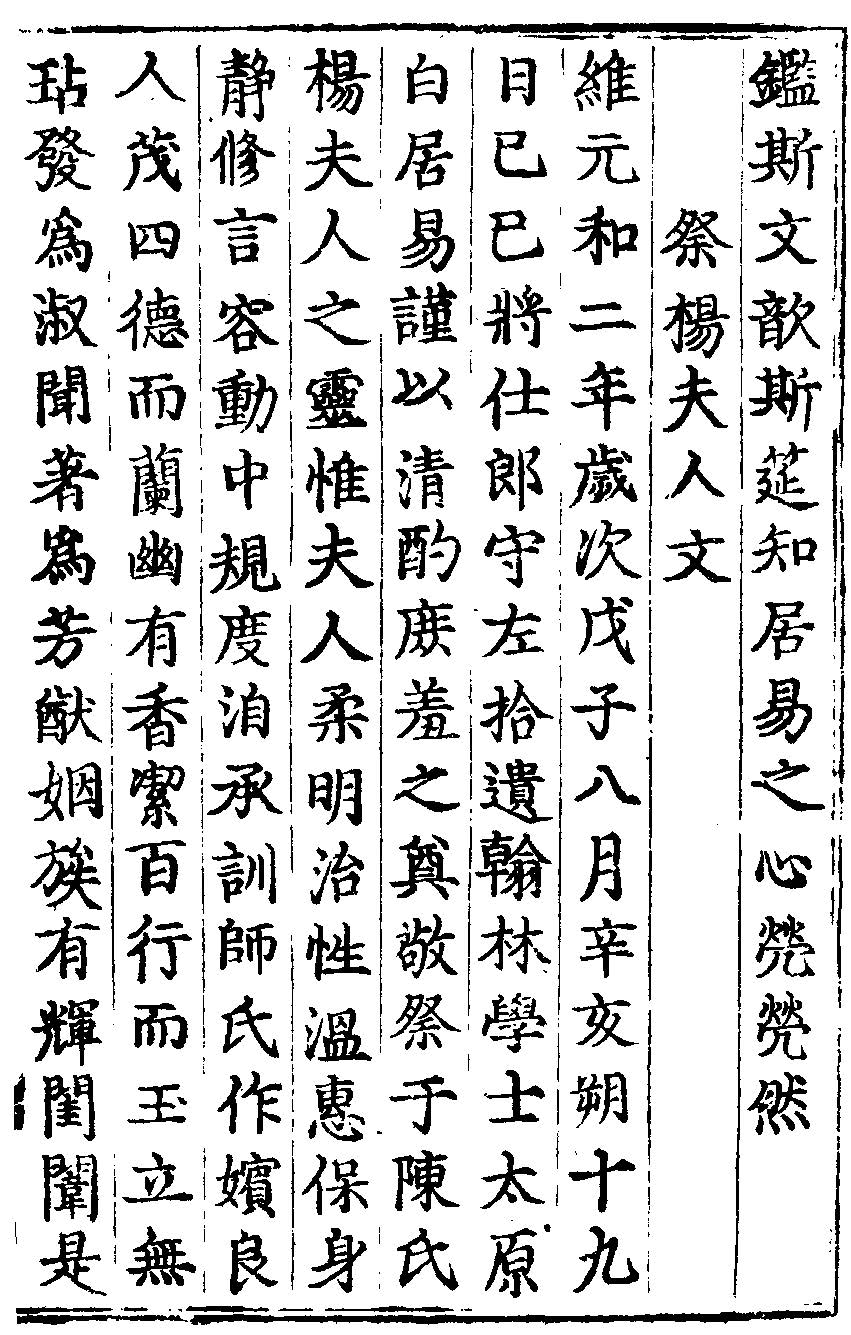 鑑斯文歆斯莚知居易之心㷀㷀然
祭楊夫人文
維元和二年歲次戊子八月辛亥朔十九
日已巳將仕郎守左拾遺翰林學士太原
白居易謹以清酌庶羞之奠敬祭于陳氏
楊夫人之靈惟夫人柔明治性溫惠保身
静修言容動中規度洎承訓師氏作嬪良
人茂四德而蘭幽有香潔百行而玉立無
玷發爲淑聞著爲芳猷姻族有輝閨闈是